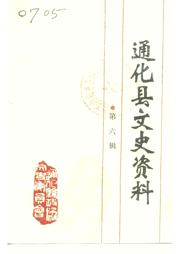 0705
通化县文史资料
第六辑